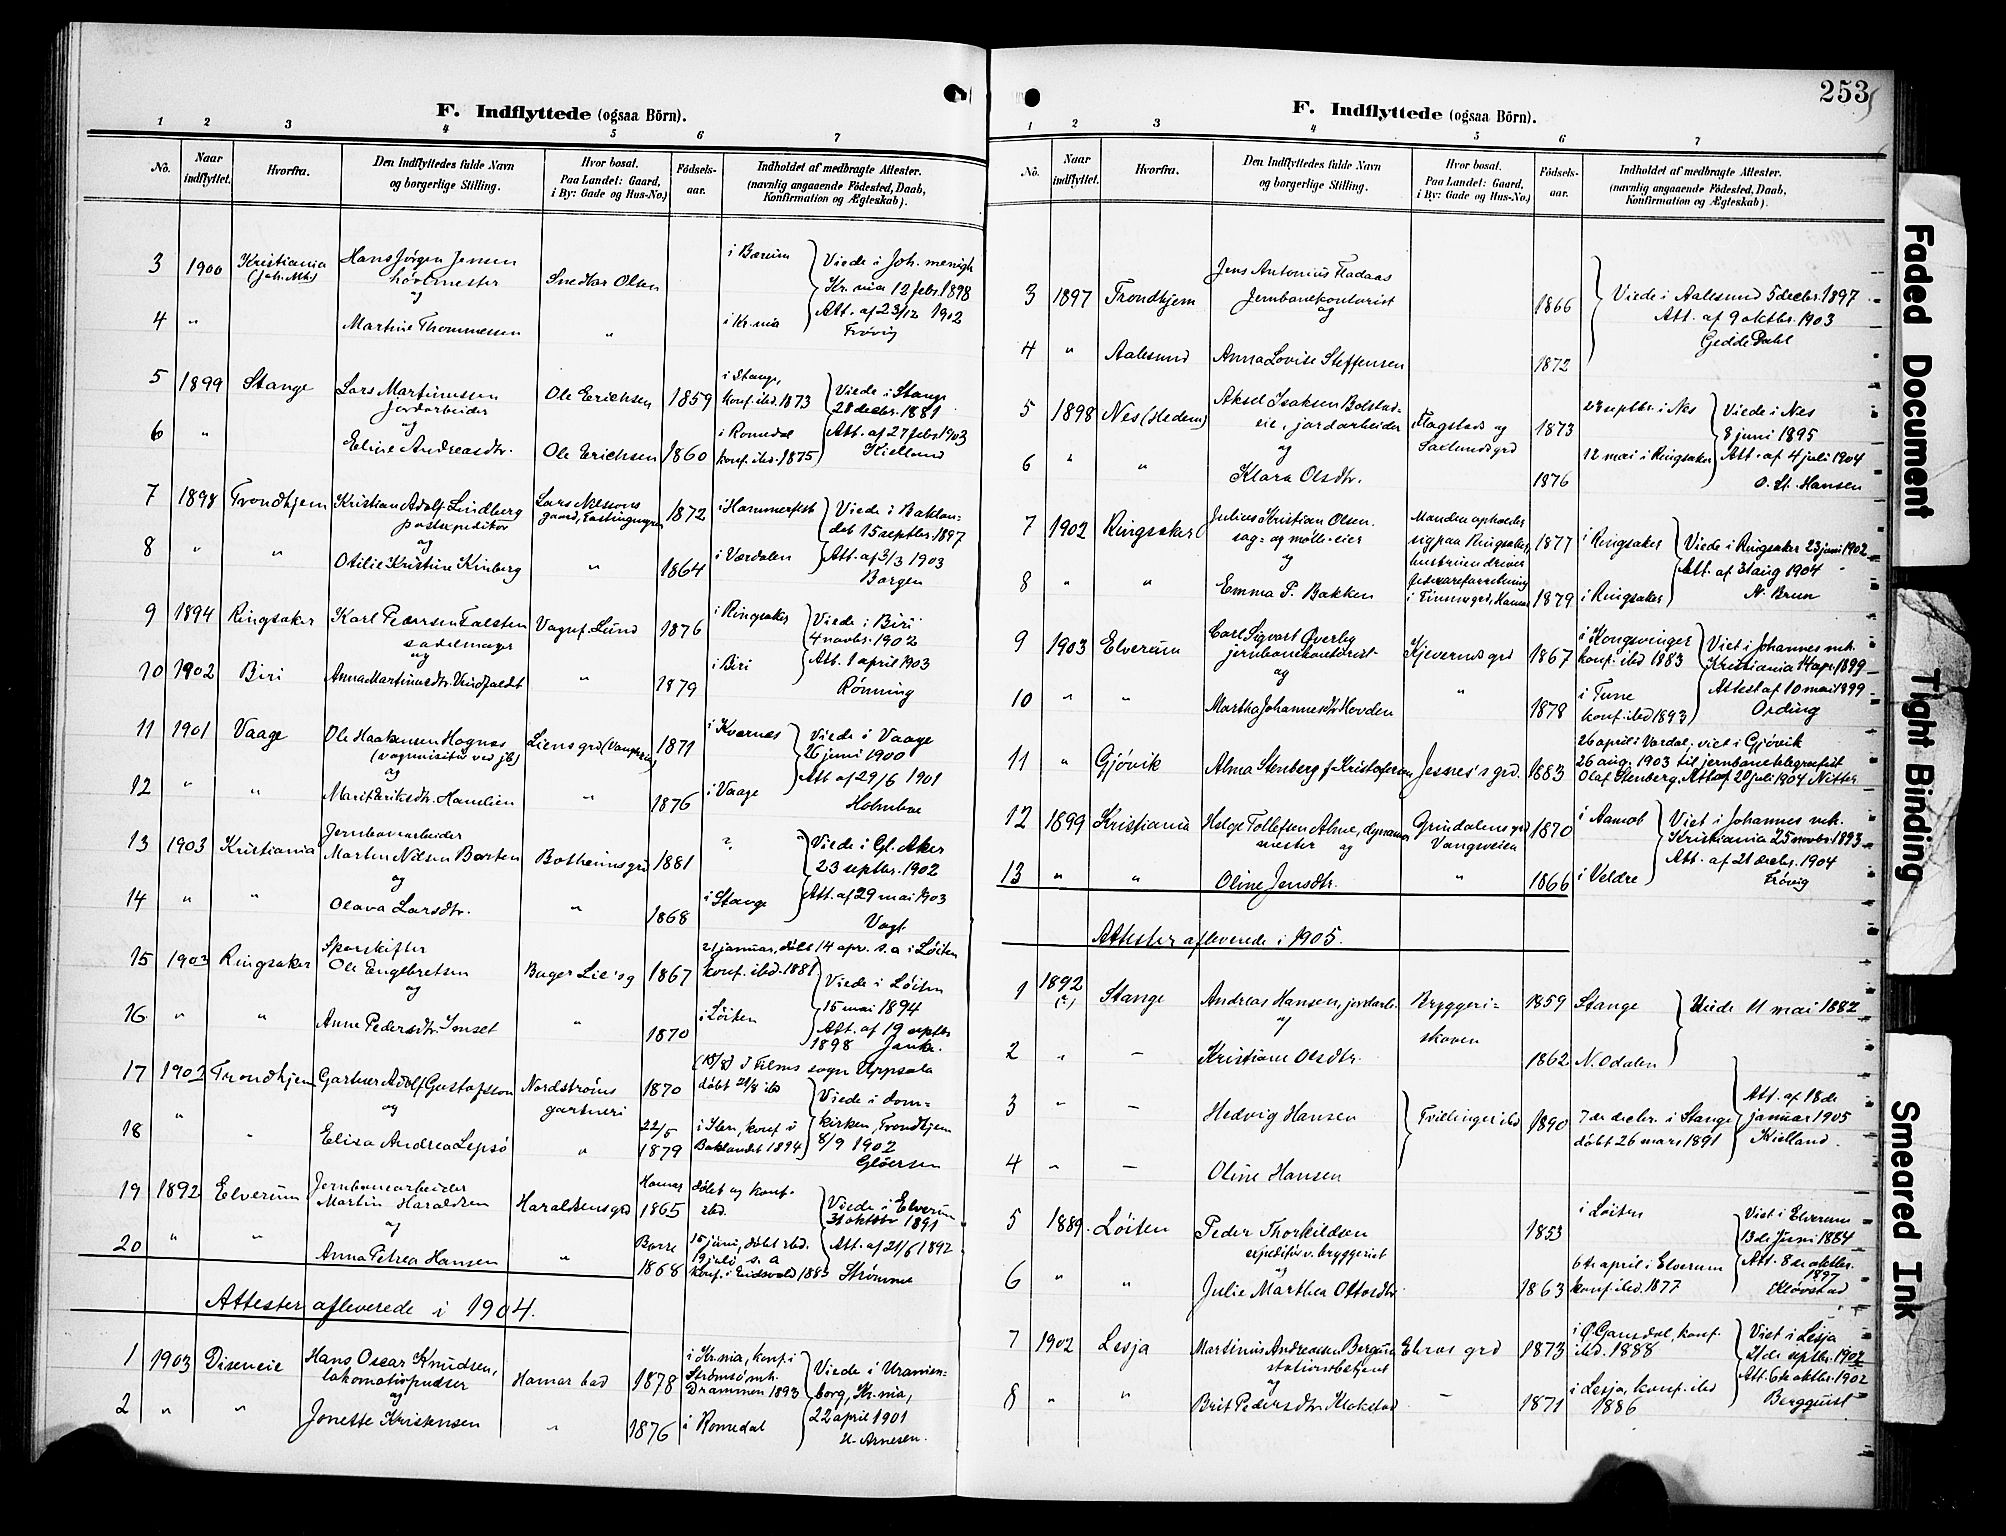 F. Indflyttede (ogsaa Börn).
1 2 3 4 5 6 7
No. Naar indflyttet. Hvorfra. Den Indflyttedes fulde Navn og borgerlige Stilling. Hvor bosat. Paa Landet: Gaard, i By: Gade og Hus-No.) Födsels-aar. Indholdet af medbragte Attester. (navnlig angaaende Födested, Daab, Konfirmation og Ægteskab).
3 1900 Kristiania Hans Jørgen Jensen i Bærum Viede i Joh. menigh
(Joh. Mh.) og Snedker Olsen Kr.nia 12 febr. 1898
4 " Martine Thommessen " i Kr.nia Att. af 23/12 1902
Frövig
5 1899 Stange Lars Martinussen Ole Erichsen 1859 i Stange, Viede i Stange
Jordarbeider konf. ibd. 1873 28 decbr. 1881
og
6 " Eline Andreasdtr. Ole Erichsen 1860 i Romedal Att. af 27 febr 1903
konf. ibd. 1875 Kielland
7 1898 Trondhjem Kristian Adolf Lindberg Lars Nilssons 1872 i Hammerfest Viede i Baklan-
postexpeditör gaard, det 15 septbr. 1897
og
8 " " Otilie Kristine Kinberg " 1864 i Værdalen Att. af 3/3 1903
Borgen
9 1894 Ringsaker Karl Pedersen Falsten Vognf. Lund 1876 i Ringsaker Viede i Biri
sadelmager 4 novbr. 1902
og
10 1902 Biri Anna Martinusdtr. 1879 i Biri Att. 1 april 1903
Rønning
11 1901 Vaage Ole Haakensen Hognes Liens grd 1871 i Kvernes Viede i Vaage
(vognvisitør ved jb) 26 juni 1900
og
12 " " Marit Eriksdtr. Hamelien " 1876 i Vaage Att af 29/6 1901
Holmboe
Jernbanearbeider
13 1903 Kristiania Martin Nilsen Borten Botheimsgrd 1881 " Viede i Gl. Aker
og 23 septbr. 1902
14 " " Olava Larsdtr. " 1868 i Stange Att. af 29 mai 1903
Vogt
Sporskifter 21 januar, döbt 14 apr. s. a i Löiten
15 1903 Ringsaker Ole Engebretsen Bager Lie's g 1867 konf. ibd. 1881 Viede i Löiten
og 15 mai 1894
16 " " Anne Pedersdtr. Imset " 1870 i Löiten Att. af 19 septbr
1898 Janke.
17 1902 Trondhjem Gartner Adolf Gustafsson Nordströms 1870 (18/8) I Films sogn Uppsala
og gartneri döbt 21/8 ibd Viede i dom-
22/5 kirken, Trondhjem
18 " " Elisa Andrea Lepsö " 1879 i Ilen, konf i Baklandet 1894 8/9 1902
Glöersen
Jernbanearbeider Hamar
19 1892 Elverum Martin Haraldsen Haraldsensgrd 1865 döbt og konf. ibd. Viede i Elverum
og 31 oktobr 1891
20 " " Anna Petrea Hansen " Borre 1868 15 juni, döbt ibd. 19 juli s. a Att. af 21/6 1892
konf. i Eidsvold 1883 Strömme
Attester afleverede i 1904.
1 1903 Diseneie Hans Oscar Knudsen, Hamar bad 1878 i Kr.nia, konf. i Viede i Uranien-
lokomotivpudser Strömsö mh. Drammen 1893 borg, Kr.nia,
og
2 " " Jonette Kristensen " 1876 i Romedal 22 april 1901
H. Arnesen.
253
F. Indflyttede (ogsaa Börn).
1 2 3 4 5 6 7
No. Naar indflyttet. Hvorfra. Den Indflyttedes fulde Navn og borgerlige Stilling. Hvor bosat. Paa Landet: Gaard, i By: Gade og Hus-No.) Födsels-aar. Indholdet af medbragte Attester. (navnlig angaaende Födested, Daab, Konfirmation og Ægteskab).
3 1897 Trondhjem Jens Antonius Fladaas 1866 Viede i Aalesund 5 decbr. 1897
Jernbanekontorist Att. af 9 oktbr. 1903
og Gedde Dahl
4 " Aalesund Anna Lovise Steffensen 1872
5 1898 Nes (Hedem) Aksel Isaksen Bolstad- Flagstads og 1873 27 septbr. i Nes Viede i Nes
eie, jordarbeider Saxlundsgrd 8 juni 1895
og
6 " " Klara Olsdtr. 1876 12 mai i Ringsaker Att. af 4 juli 1904
O. St. Hansen
7 1902 Ringsaker Julius Kristian Olsen Manden opholder 1877 i Ringsaker Viede i Ringsaker 23 juni 1902
sag- og mölle-eier sig paa Ringsaker,
og hustruen driver Att. af 31 aug 1904
8 " " Emma P. Bakken i Finnesgrd, Hamar 1879 i Ringsaker N. Brun
9 1903 Elverum Carl Sigvart Överby Kjevernsgrd 1867 i Kongsvinger Viet i Johannes mh.
jernbanekontorist konf. ibd 1883 Kristiania 14 apr. 1899
og
10 " " Martha Johannesdtr Hovden " 1878 i Tune Attest af 10 mai 1899
konf. ibd 1893 Ording
26 april i Vardal, viet i Gjövik
11 " Gjövik Alma Stenberg f. Kristofersen Jesnes's grd. 1883 26 aug. 1903 til jernbanetelegrafist
Olaf Stenberg. Att af 20 juli 1904 Nitter
12 1899 Kristiania Helge Tollefsen Alme, Grundalensgrd 1870 i Aamot Viet i Johannes mh.
mester og Vangsveien Kristiania 25 novbr. 1893
13 " " Oline Jensdtr. " 1866 i Veldre Att. af 21 decbr. 1904
Frövig
Attester afleverede i 1905.
1 1892 Stange Andreas Hansen, jordarb. Bryggeri- 1859 Stange Viede 11 mai 1882
(?) og skoven
2 " — Kristiane Olsdtr. 1862 N. Odalen
3 " — Hedvig Hansen Tvillinger ibd 1890 7 de decbr. i Stange Att. af 18 de
döbt 26 mars 1891 januar 1905
Kielland.
4 " — Oline Hansen
5 1889 Löiten Peder Thorkildsen 1853 i Löiten Viet i Elverum
expeditör v. bryggeriet 13 de Juni 1884
og
6 " " Julie Marthea Ottosdtr 1863 6 te april i Elverum Att. 8 de oktbr.
konf. ibd. 1877 1897
Klövstad
7 1902 Lesja Martinius Andreassen Bergum grd 1873 i Ö. Gausdal, konf. Viet i Lesja
stationsbetjent ibd. 1888 21 de septbr. 1902
og
8 " " Brit Pedersdtr. Klokstad — 1871 i Lesja, konf. ibd Att. 6 te oktbr. 1902
1886 Bergquist
Faded Document
Tight Binding
Smeared Ink